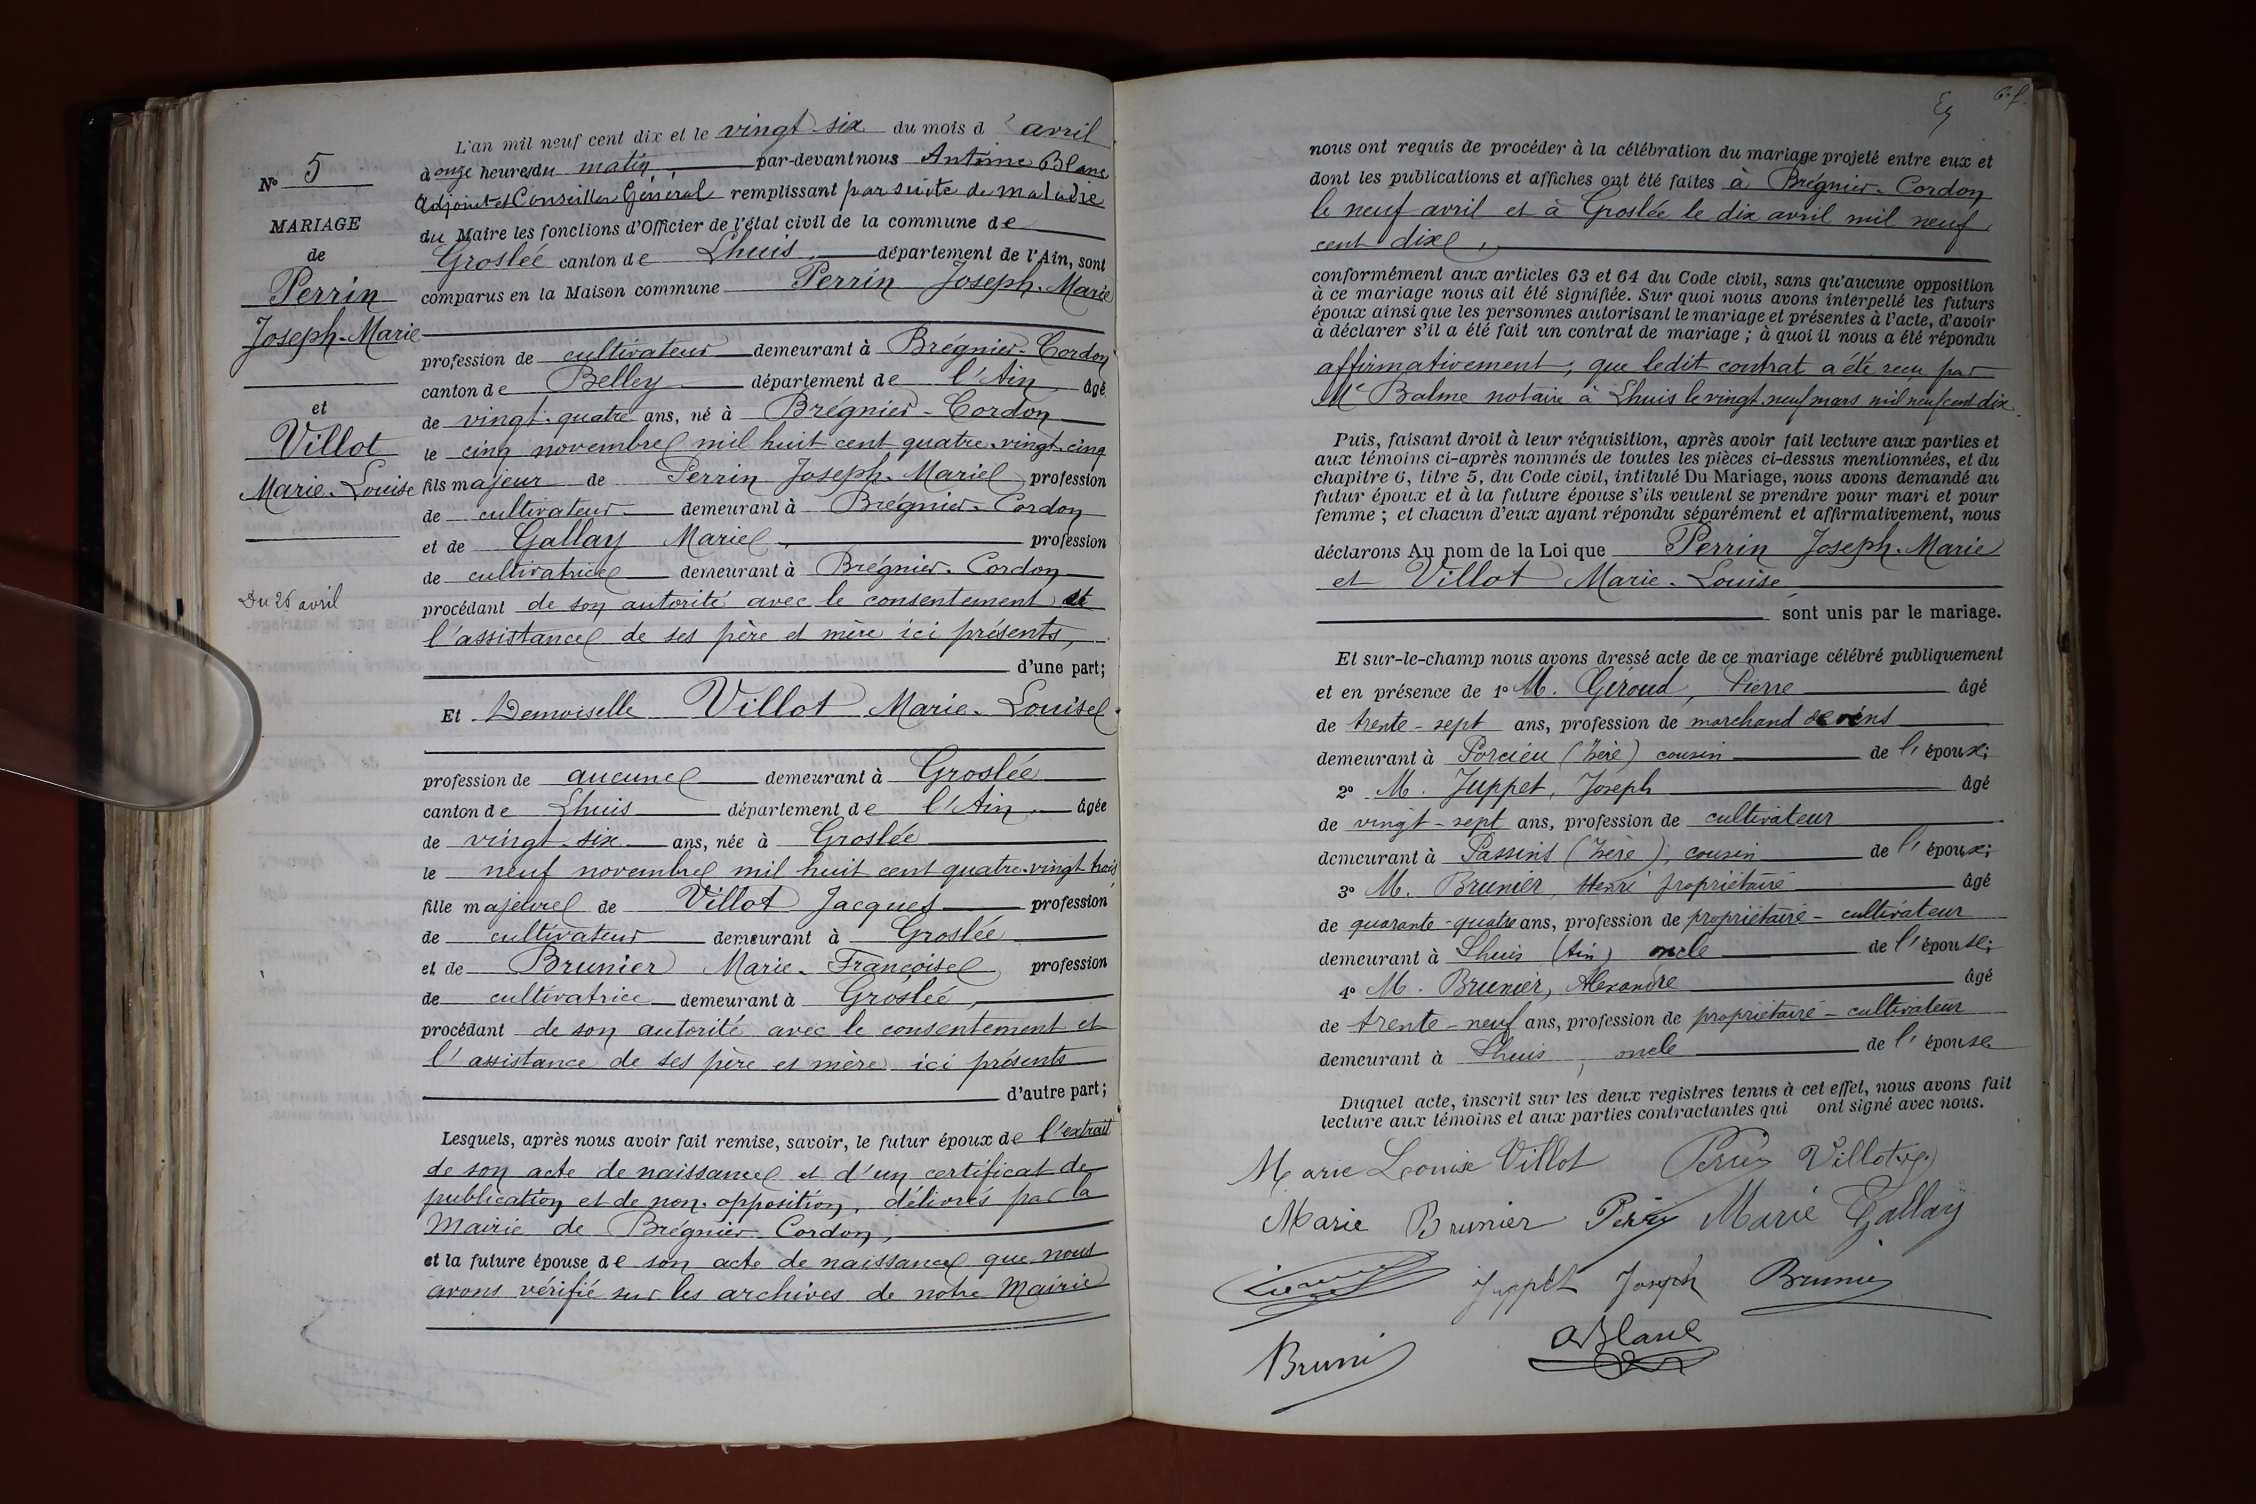 N° 5
MARIAGE
de
Perrin
Joseph-Marie
et
Villot
Marie-Louise
Du 26 avril
L'an mil neuf cent dix et le vingt-six du mois d'avril
à onze heures du matin par-devant nous Antoine Blanc
Adjoint et Conseiller Général remplissant par suite de maladie
du Maire les fonctions d'Officier de l'état civil de la commune de
Groslée canton de Lhuis, département de l'Ain, sont
comparus en la Maison commune Perrin Joseph-Marie
profession de cultivateur demeurant à Brégnier-Cordon
canton de Belley département de l'Ain âgé
de vingt-quatre ans, né à Brégnier-Cordon
le cinq novembre mil huit cent quatre-vingt-cinq
fils majeur de Perrin Joseph-Marie, profession
de cultivateur demeurant à Brégnier-Cordon
et de Gallay Marie, profession
de cultivatrice demeurant à Brégnier-Cordon
procédant de son autorité avec le consentement et
l'assistance de ses père et mère ici présents,
d'une part;
Et Demoiselle Villot Marie-Louise
profession de aucune demeurant à Groslée
canton de Lhuis département de l'Ain âgée
de vingt-six ans, née à Groslée
le neuf novembre mil huit cent quatre-vingt trois
fille majeure de Villot Jacques profession
de cultivateur demeurant à Groslée
et de Brunier Marie-Françoise, profession
de cultivatrice demeurant à Groslée,
procédant de son autorité avec le consentement et
l'assistance de ses père et mère ici présents
d'autre part;
Lesquels, après nous avoir fait remise, savoir, le futur époux de l'extrait
de son acte de naissance et d'un certificat de
publication et de non-opposition, délivrés par la
Mairie de Brégnier-Cordon,
et la future épouse de son acte de naissance que nous
avons vérifié sur les archives de notre Mairie
nous ont requis de procéder à la célébration du mariage projeté entre eux et
dont les publications et affiches ont été faites à Brégnier-Cordon
le neuf avril et à Groslée le dix avril mil neuf
cent dix,
conformément aux articles 63 et 64 du Code civil, sans qu'aucune opposition
à ce mariage nous ait été signifiée. Sur quoi nous avons interpellé les futurs
époux ainsi que les personnes autorisant le mariage et présentes à l'acte, d'avoir
à déclarer s'il a été fait un contrat de mariage ; à quoi il nous a été répondu
affirmativement; que ledit contrat a été reçu par
Me Balme notaire à Lhuis le vingt-neuf mars mil neuf cent dix.
Puis, faisant droit à leur réquisition, après avoir fait lecture aux parties et
aux témoins ci-après nommés de toutes les pièces ci-dessus mentionnées, et du
chapitre 6, titre 5, du Code civil, intitulé Du Mariage, nous avons demandé au
futur époux et à la future épouse s'ils veulent se prendre pour mari et pour
femme ; et chacun d'eux ayant répondu séparément et affirmativement, nous
déclarons Au nom de la Loi que Perrin Joseph-Marie
et Villot Marie-Louise
sont unis par le mariage.
Et sur-le-champ nous avons dressé acte de ce mariage célébré publiquement
et en présence de 1° M. Géroud, Pierre âgé
de trente-sept ans, profession de marchand de vins
demeurant à Porcieu (Isère) cousin de l'épouse;
2° M. Juppet, Joseph âgé
de vingt-sept ans, profession de cultivateur
demeurant à Passins (Isère), cousin de l'épouse;
3° M. Brunier, Henri propriétaire âgé
de quarante-quatre ans, profession de propriétaire-cultivateur
demeurant à Lhuis (Ain) oncle de l'épouse;
4° M. Brunier, Alexandre âgé
de trente-neuf ans, profession de propriétaire-cultivateur
demeurant à Lhuis, oncle de l'épouse
Duquel acte, inscrit sur les deux registres tenus à cet effet, nous avons fait
lecture aux témoins et aux parties contractantes qui ont signé avec nous.
Marie Louise Villot Perrin Villot
Marie Brunier Perrin Marie Gallay
Juppet Joseph Brunier
Brunier
A Blanc